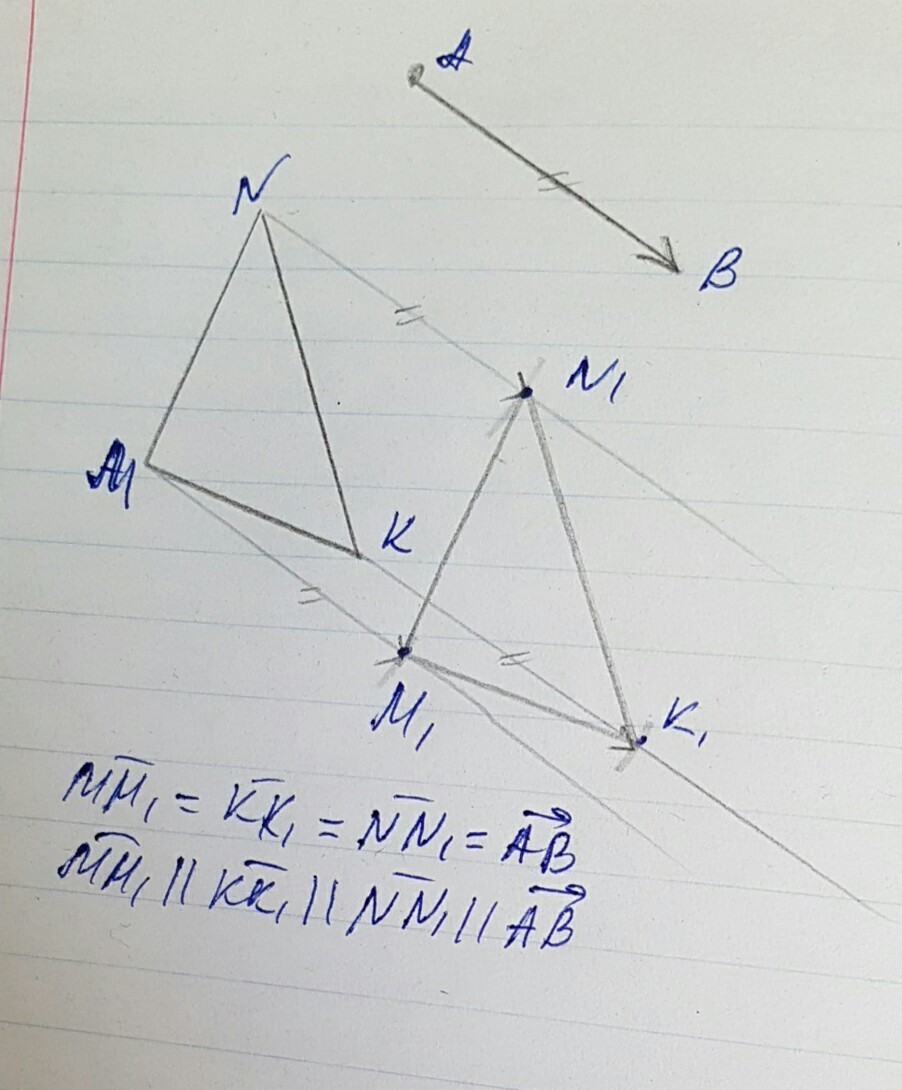 A
N
B
N₁
M
K
M₁
K₁
M̅M̅₁ = K̅K̅₁ = N̅N̅₁ = A⃗B⃗
M̅M̅₁ || K̅K̅₁ || N̅N̅₁ || A⃗B⃗